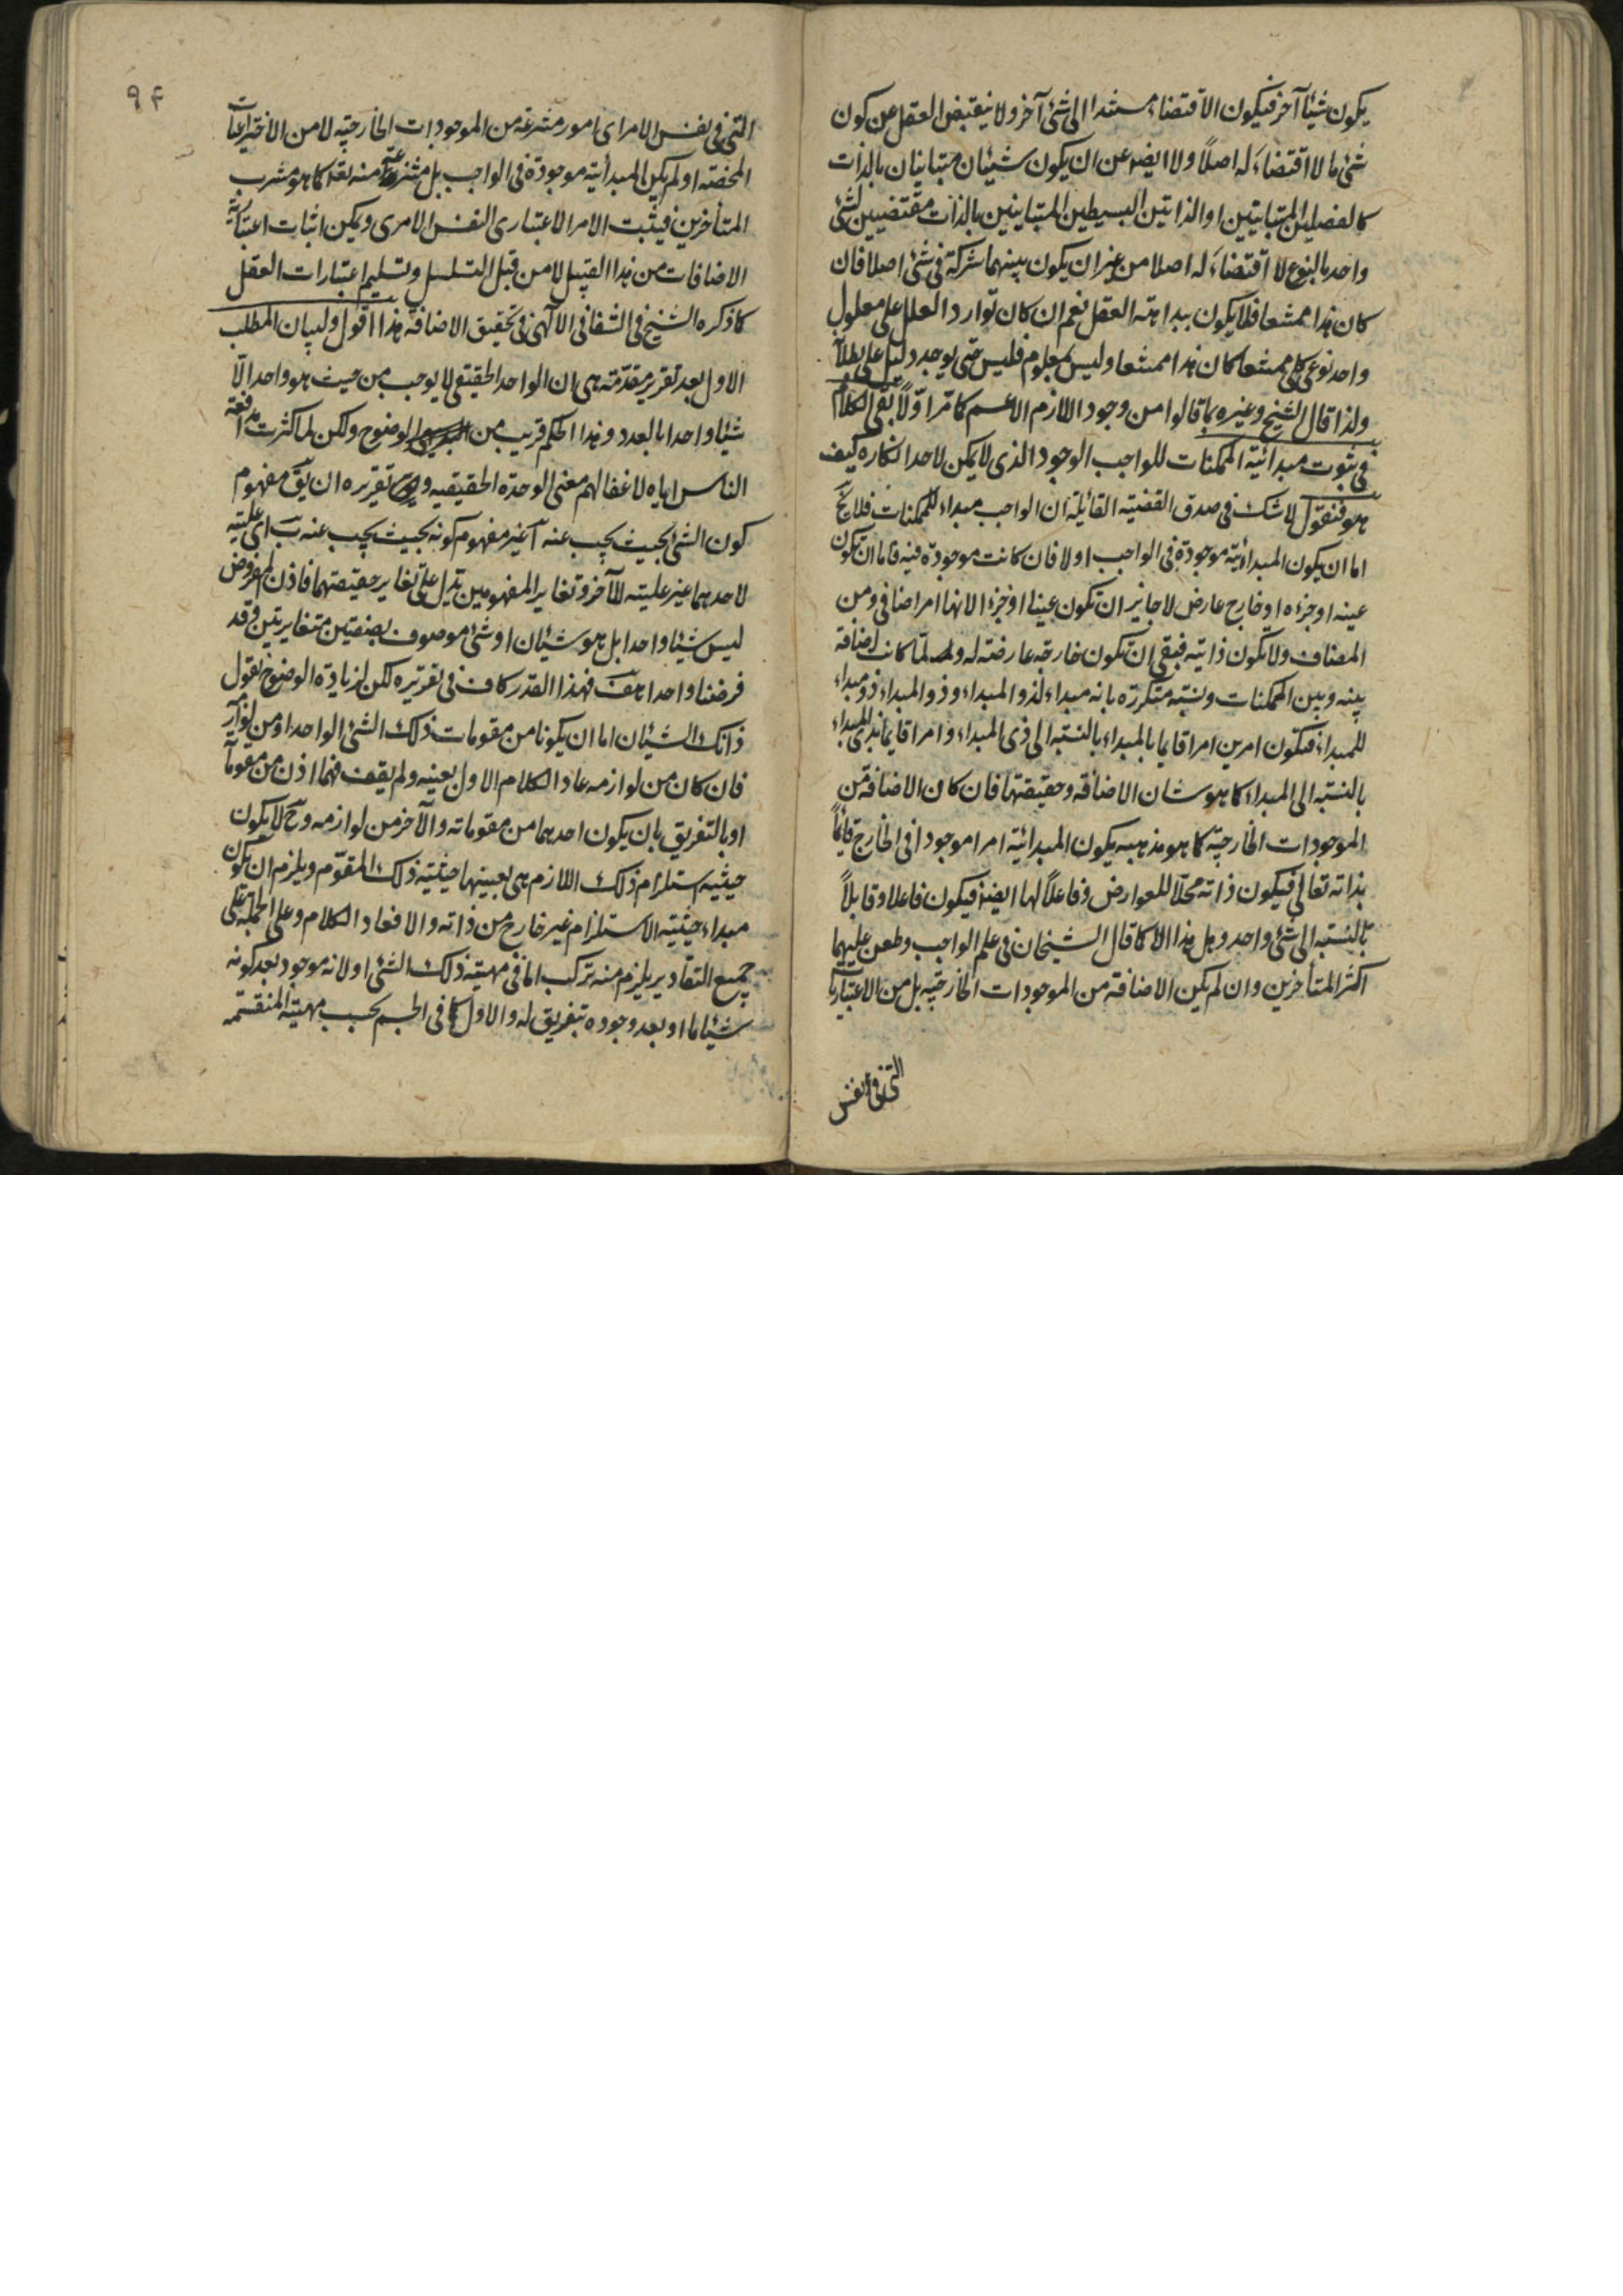 يكون شيئا آخر فيكون الاقتضاء مستندا الى شئ آخر ولا ينقبض العقل من كون
شئ ما لا اقتضاء له اصلاً ولا ايضا عن ان يكون شيئان متباينان بالذات
كالفصلين المتباينين او الذاتين البسيطين المتباينين بالذات مقتضيين لشئ
واحد بالنوع لا اقتضاء له اصلا من غير ان يكون بينهما شركة فى شئ اصلا فان
كان هذا ممتنعا فلا يكون ببداهة العقل نعم ان كان توارد العلل على معلول
واحد نوعى كلى ممتنعا كان هذا ممتنعا وليس بمعلوم فليس حتى يوجد دليل على بطلا
ولذا قال الشيخ وغيره بما قالوا من وجود اللازم الاعم كما مرّ اوّلاً بقى الكلام
فى ثبوت مبدائية الممكنات للواجب الوجود الذى لا يمكن لاحد انكاره كيف
هو فنقول لا شك فى صدق القضية القائلة ان الواجب مبداء للممكنات فلا يخ
اما ان يكون المبدائية موجودة فى الواجب او لا فان كانت موجودة فيه فاما ان تكون
عينه او جزءه او خارج عارض لا جايز ان تكون عينا او جزء لانها امر اضافى ومن
المضاف ولا تكون ذاتية فبقى ان تكون خارجة عارضة له ولما كانت اضافة
بينه وبين الممكنات ونسبة متكررة بانه مبداء لذو المبداء وذو المبداء ذو مبداء
للمبداء فتكون امرين امرا قايما بالمبداء بالنسبة الى ذى المبداء وامرا قايما بذى المبداء
بالنسبة الى المبداء كما هو شان الاضافة وحقيقتها فان كان الاضافة من
الموجودات الخارجية كما هو مذهبه يكون المبدائية امرا موجودا فى الخارج قائماً
بذاته تعالى فيكون ذاته محلّا للعوارض وفاعلاً لها ايضا فيكون فاعلا وقابلاً
بالنسبة الى شئ واحد وهل هذا الا كما قال الشيخان فى علم الواجب وطعن عليهما
اكثر المتأخرين وان لم يكن الاضافة من الموجودات الخارجية بل من الاعتباريات
التى فى نفس
٩٤
التى فى نفس الامر اى امور منتزعة من الموجودات الخارجية لا من الاختراعيات
المحضة او لم يكن المبدائية موجودة فى الواجب بل منتزعة منه تعا كما هو مشرب
المتأخرين فيثبت الامر الاعتبارى النفس الامرى ويمكن اثبات اعتبارية
الاضافات من هذا القبيل لا من قبل التسلسل وتسليم اعتبارات العقل
كما ذكره الشيخ فى الشفا فى الآلهى فى تحقيق الاضافة هذا اقول ولبيان المطلب
الاول بعد تقرير مقدّمة هى ان الواحد الحقيقى لا يوجب من حيث هو واحد الّا
شيئا واحدا بالعدد وهذا الحكم قريب من الوضوح ولكن لما كثرت مدافعة
الناس اياه لاغفالهم معنى الوحدة الحقيقيه و تقريره ان يق مفهوم
كون الشئ بحيث يجب عنه آ غير مفهوم كونه بحيث يجب عنه ب اى علية
لاحدهما غير علية للآخر وتغاير المفهومين يدل على تغاير حقيقتهما فاذن المفروض
ليس شيئا واحدا بل هو شيئان او شئ موصوف بصفتين متغايرتين وقد
فرضنا واحدا هف فهذا القدر كاف فى تقريره لكن لزيادة الوضوح نقول
ذانك الشيئان اما ان يكونا من مقومات ذلك الشئ الواحد او من لوازمه
فان كان من لوازمه عاد الكلام الاول بعينه ولم يقف فهما اذن من مقوماته
او بالتفريق بان يكون احدهما من مقوماته والآخر من لوازمه وح لا يكون
حيثية استلزام ذلك اللازم هى بعينها حيثية ذلك المقوّم ويلزم ان يكون
مبداء حيثية الاستلزام غير خارج من ذاته والا فعاد الكلام وعلى الجملة على
جميع التقادير يلزم منه تركب اما فى مهية ذلك الشئ او لانه موجود بعد كونه
شيئا ما او بعد وجوده بتفريق له والاول كما فى الجسم بحسب مهيته المنقسمة